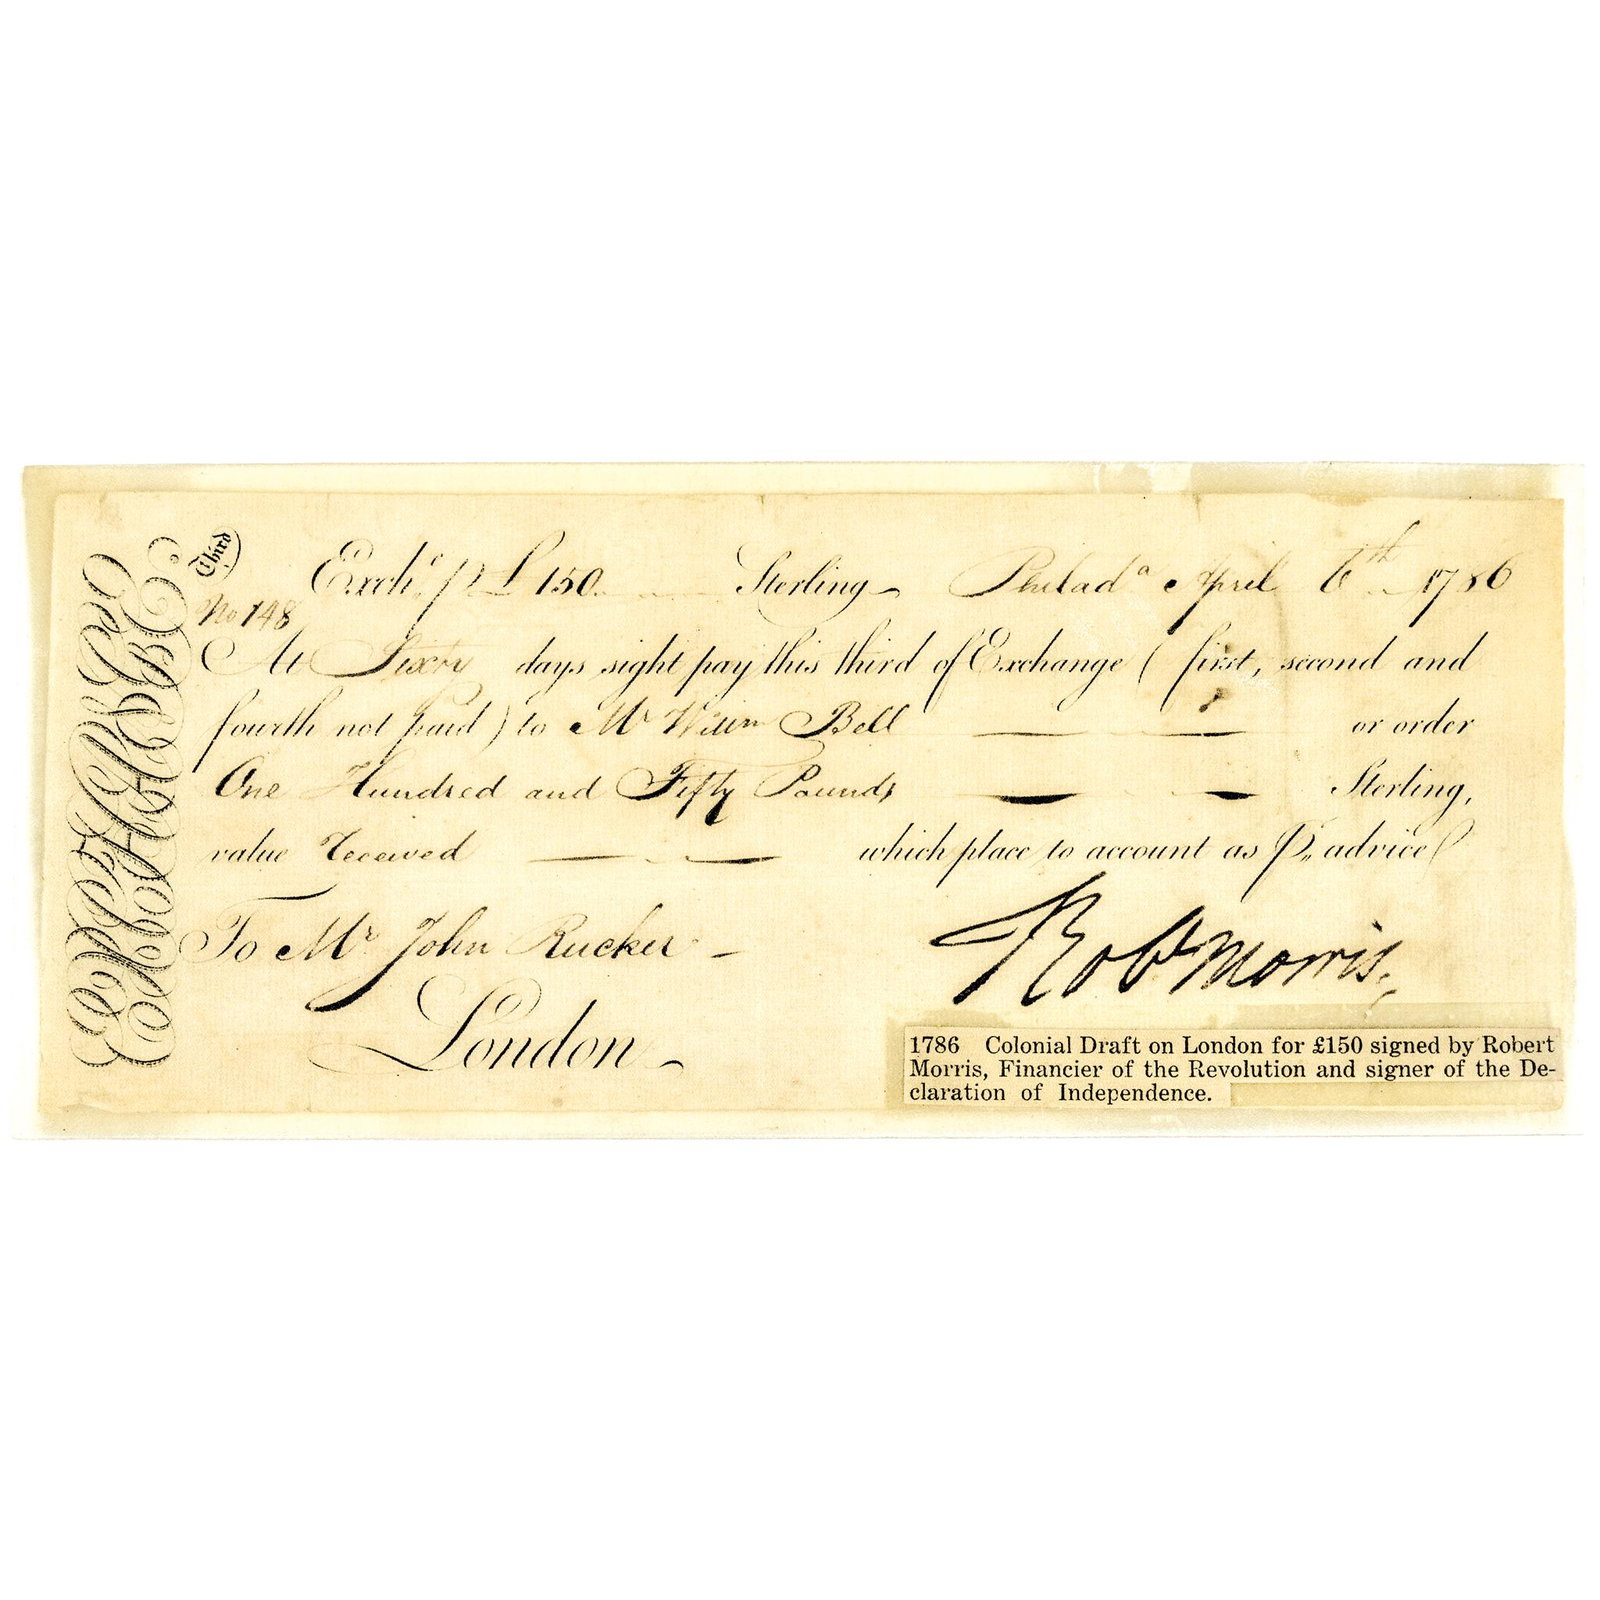 Third
Exch.e p £ 150 Sterling Philad.a April 6th 1786
No 148
At Sixty days sight pay this third of Exchange ( first, second and
fourth not paid ) to Mr Willm Bell or order
One Hundred and Fifty Pounds Sterling,
value Received which place to account as P. advice
To Mr John Rucker
London
Robt Morris.
1786 Colonial Draft on London for £150 signed by Robert
Morris, Financier of the Revolution and signer of the De-
claration of Independence.